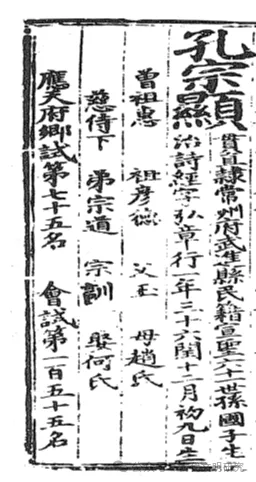 孔宗顯
貫直隸常州府武進縣民籍宣聖六十一世孫國子生
治詩經字弘章行一年三十六閏十二月初九日生
曾祖惠 祖彥德 父玉 母趙氏
慈侍下 弟宗道 宗訓 娶何氏
應天府鄉試第七十五名 會試第一百五十五名